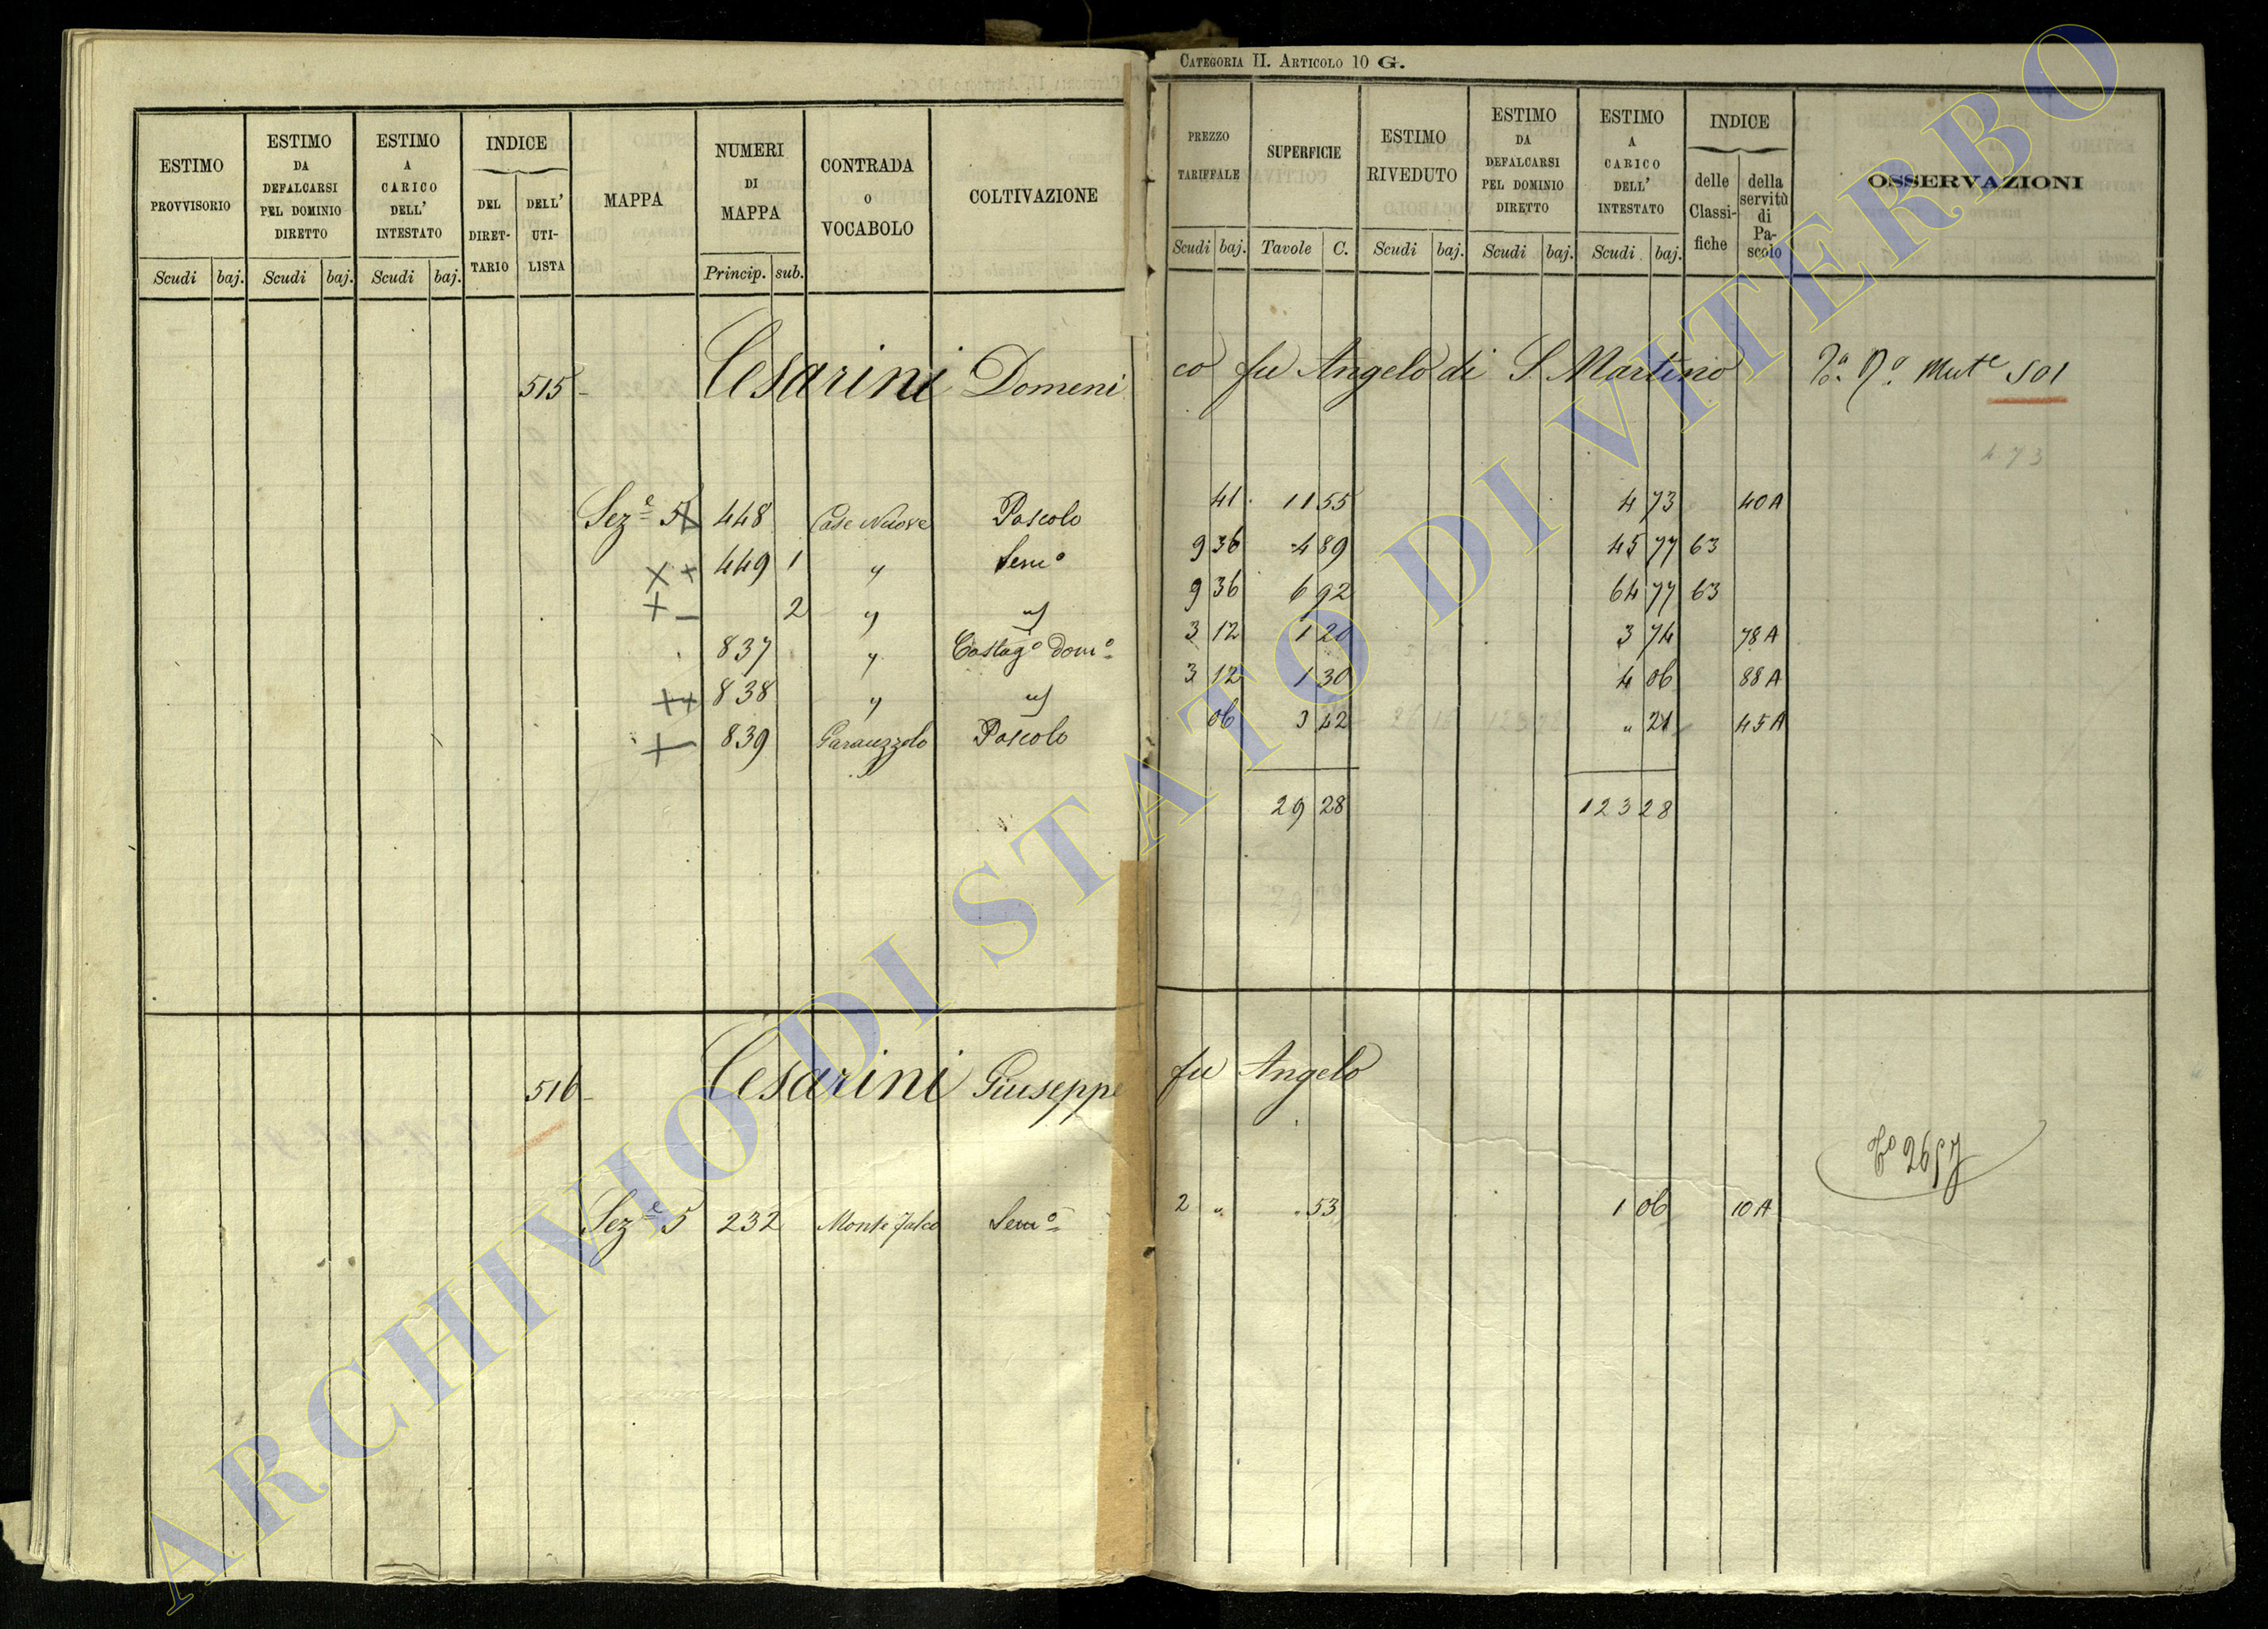 CATEGORIA II. ARTICOLO 10 G.
ESTIMO PROVVISORIO
ESTIMO DA DEFALCARSI PEL DOMINIO DIRETTO
ESTIMO A CARICO DELL' INTESTATO
INDICE
DEL DIRET-TARIO
DELL' UTI-LISTA
MAPPA
NUMERI DI MAPPA
CONTRADA O VOCABOLO
COLTIVAZIONE
PREZZO TARIFFALE
SUPERFICIE
ESTIMO RIVEDUTO
ESTIMO DA DEFALCARSI PEL DOMINIO DIRETTO
ESTIMO A CARICO DELL' INTESTATO
INDICE
delle Classi-fiche
della servitù di Pa-scolo
OSSERVAZIONI
Scudi baj. Scudi baj. Scudi baj. Princip. sub. Scudi baj. Tavole C. Scudi baj. Scudi baj. Scudi baj.
515 Cesarini Domenico fu Angelo di S. Martino Mut.e 501
473
Sez.e 5 448 Case Nuove Pascolo 41 11 55 4 73 40 A
449 1 " Sem.o 9 36 4 89 45 77 63
2 " " 9 36 6 92 64 77 63
837 " Castag.o Dom.o 3 12 1 20 3 74 78 A
838 " " 3 12 1 30 4 06 88 A
839 Pascolo 06 3 42 " 21 45 A
29 28 123 28
516 Cesarini Giuseppe fu Angelo
Sez.e 5 232 Monte Falco Sem.o 2 " . 53 1 06 10 A
ARCHIVIO DI STATO DI VITERBO